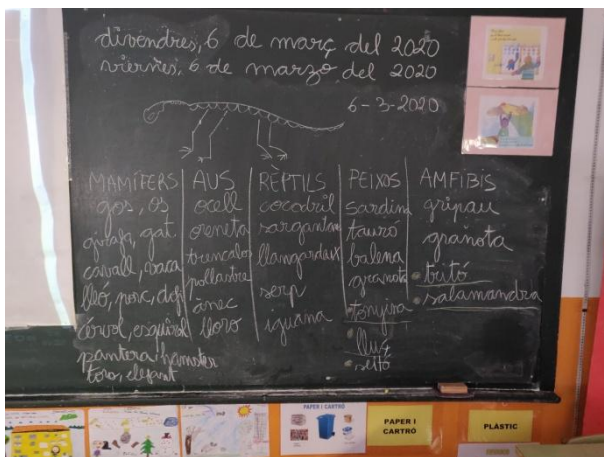 divendres, 6 de març del 2020
viernes, 6 de marzo del 2020
6-3-2020
MAMÍFERS
gos, os
girafa, gat
cavall, vaca
lleó, porc, dofí
cérvol, esquirol
pantera, hamster
toro, elefant
AUS
ocell
oreneta
trencalos
pollastre
ànec
lloro
RÈPTILS
cocodril
sargantana
llangardaix
serp
iguana
PEIXOS
sardina
tauró
balena
granota
tonyina
lluç
tritó
AMFIBIS
gripau
granota
tritó
salamandra
PAPER I CARTRÓ
PAPER I
CARTRÓ
PLÀSTIC